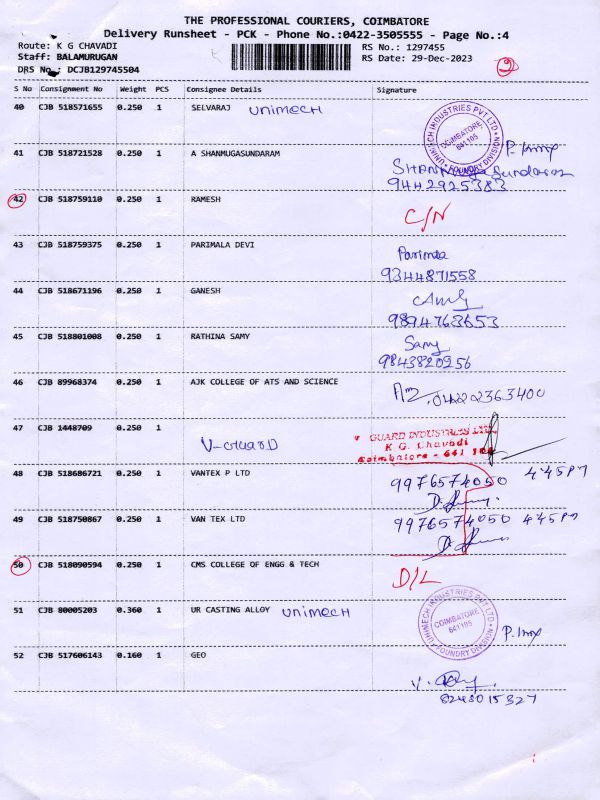 THE PROFESSIONAL COURIERS, COIMBATORE
Delivery Runsheet - PCK - Phone No.:0422-3505555 - Page No.:4
Route: K G CHAVADI RS No.: 1297455
Staff: BALAMURUGAN RS Date: 29-Dec-2023
DRS No.: DCJB129745504
S No Consignment No Weight PCS Consignee Details Signature
40 CJB 518571655 0.250 1 SELVARAJ UNIMECH
UNIMECH INDUSTRIES PVT LTD
COIMBATORE
641105
FOUNDRY DIVISION
41 CJB 518721528 0.250 1 A SHANMUGASUNDARAM
9442925383
42 CJB 518759110 0.250 1 RAMESH C/N
43 CJB 518759375 0.250 1 PARIMALA DEVI Parimala
9344871558
44 CJB 518671196 0.250 1 GANESH
9894763653
45 CJB 518801008 0.250 1 RATHINA SAMY Samy
9843820256
46 CJB 89968374 0.250 1 AJK COLLEGE OF ATS AND SCIENCE 04222363400
47 CJB 1448709 0.250 1 V-GUARD
GUARD INDUSTRIES LTD
K G. Chavadi
Coimbatore - 641
48 CJB 518686721 0.250 1 VANTEX P LTD 9976574050 4:45 PM
49 CJB 518750867 0.250 1 VAN TEX LTD 9976574050 4:45 PM
50 CJB 518090594 0.250 1 CMS COLLEGE OF ENGG & TECH D/L
51 CJB 80005203 0.360 1 UR CASTING ALLOY UNIMECH
UNIMECH INDUSTRIES PVT LTD
COIMBATORE
641105
FOUNDRY DIVISION
52 CJB 517606143 0.160 1 GEO
8248015327